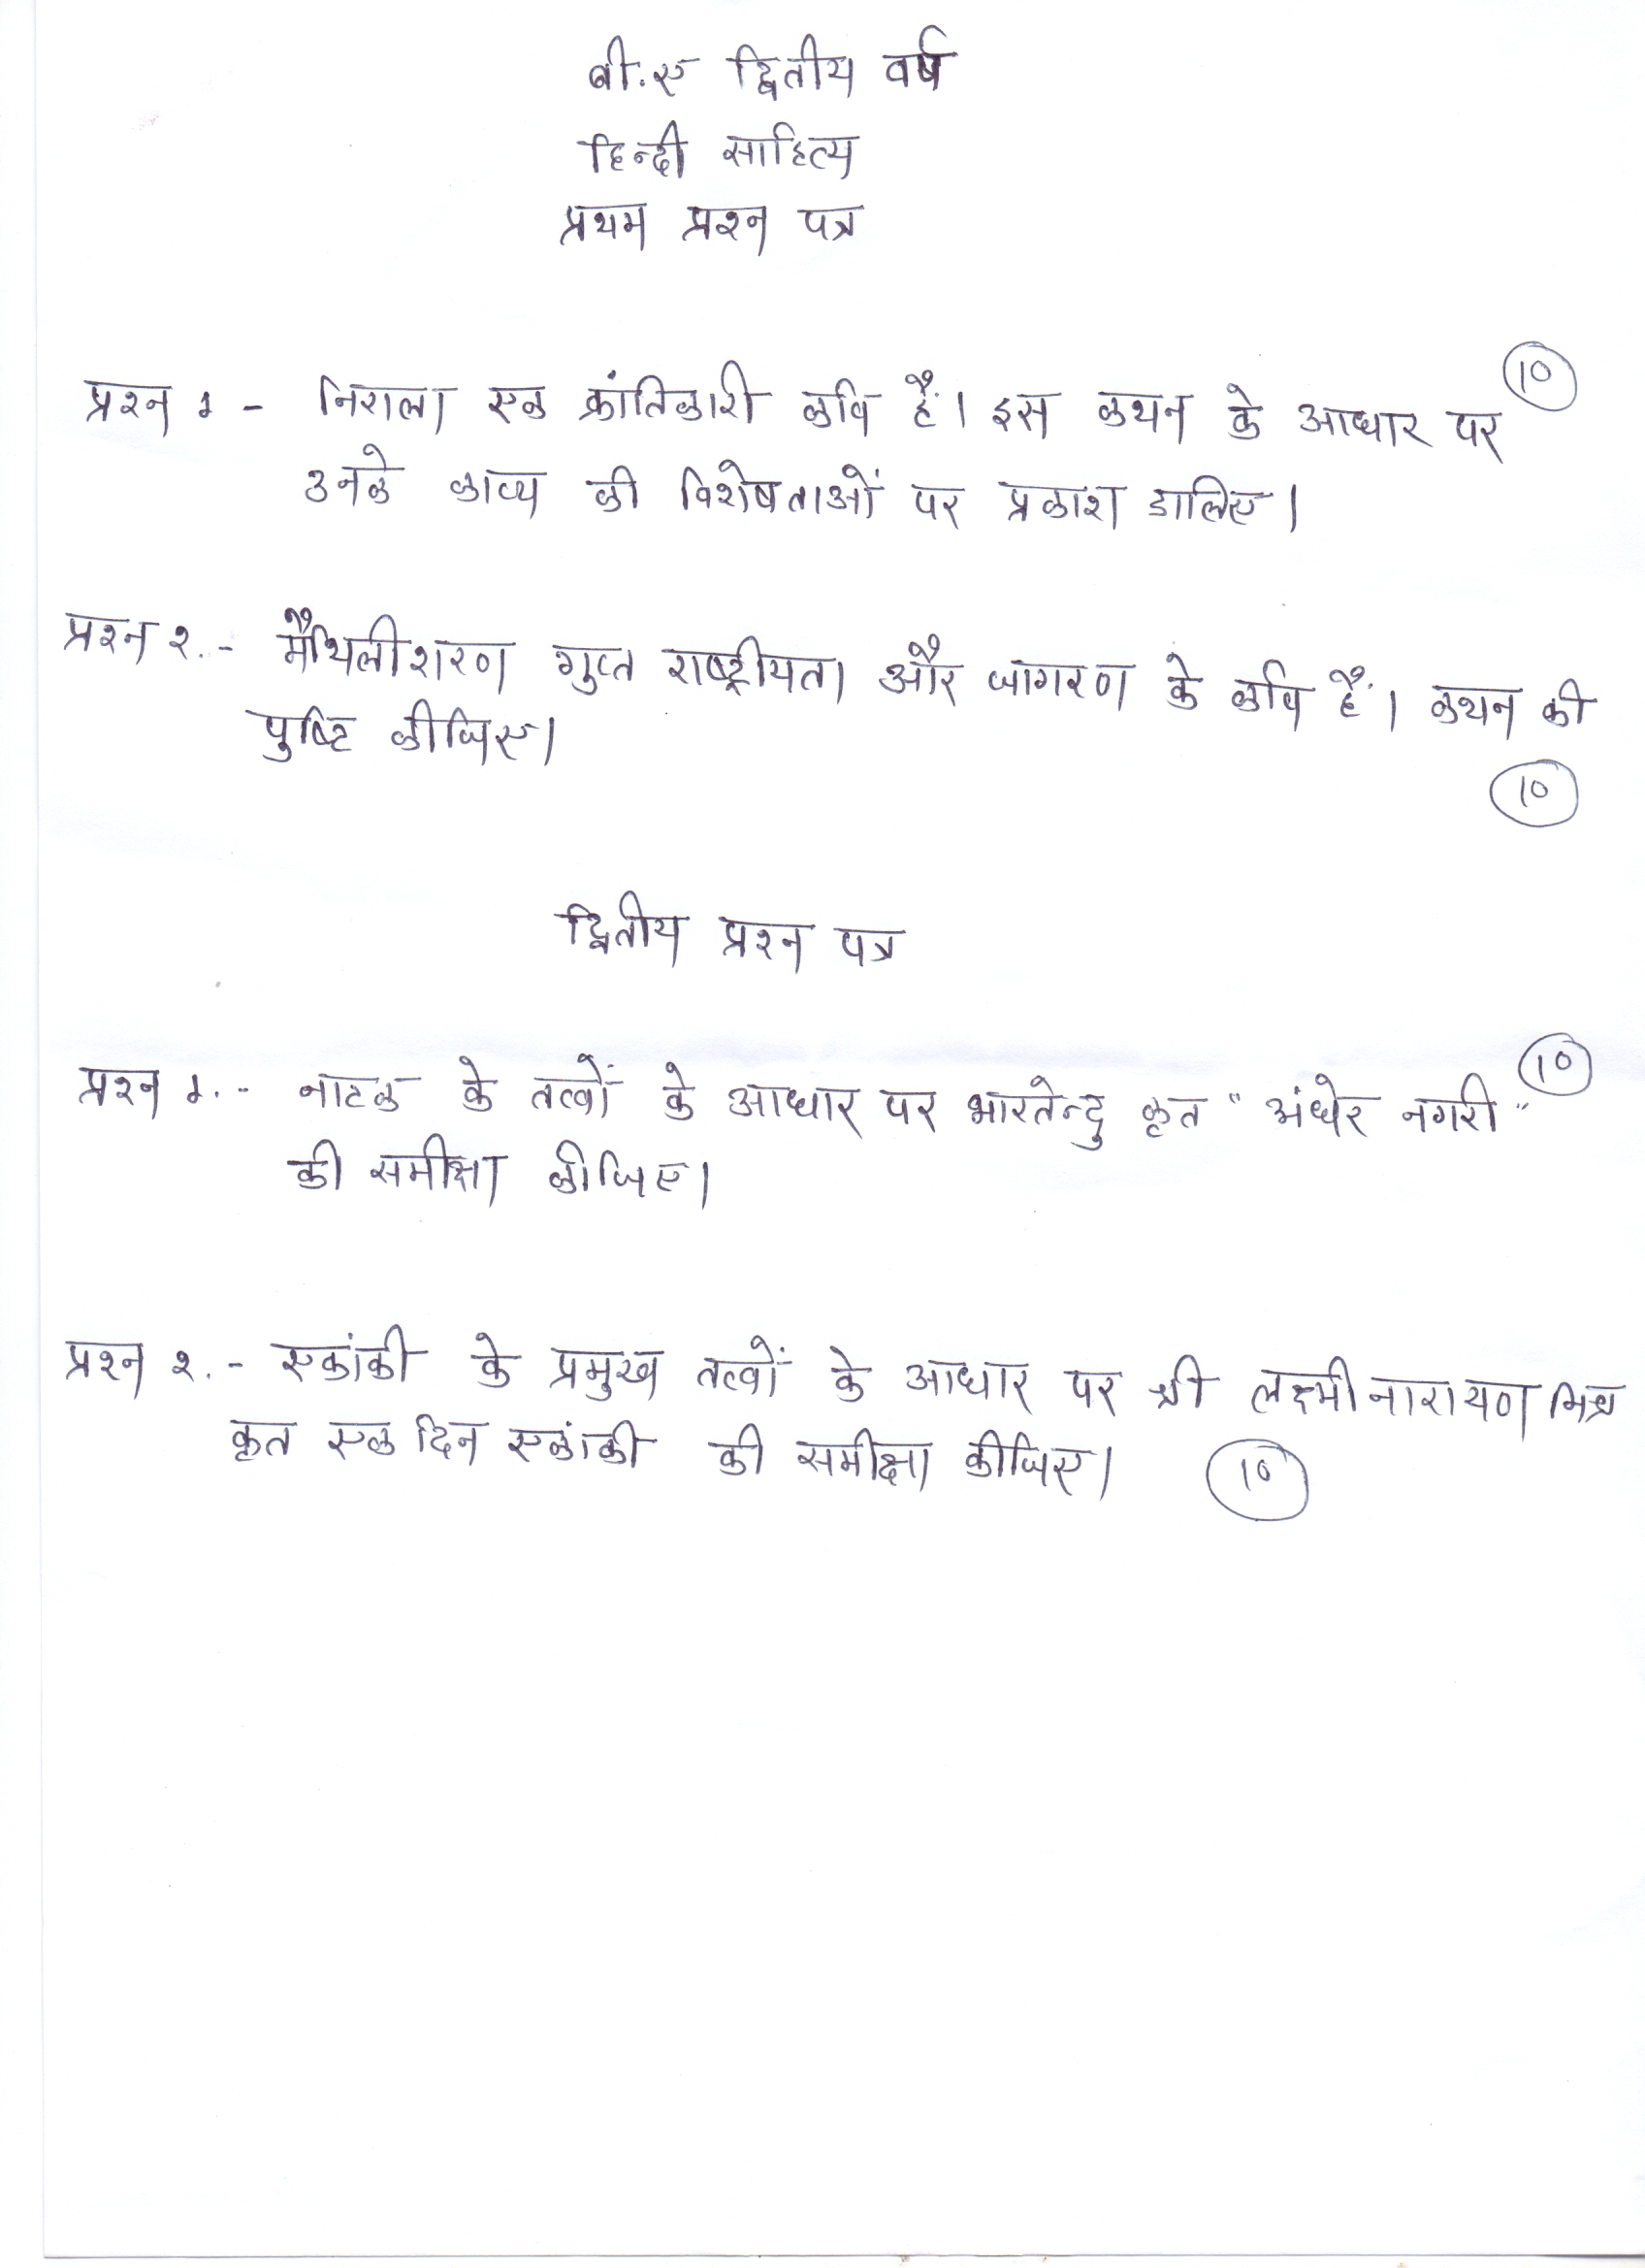 बी.ए द्वितीय वर्ष
हिन्दी साहित्य
प्रथम प्रश्न पत्र
10
प्रश्न १ - निराला एक क्रांतिकारी कवि हैं। इस कथन के आधार पर
उनके काव्य की विशेषताओं पर प्रकाश डालिए।
प्रश्न २.- मैथिलीशरण गुप्त राष्ट्रीयता और जागरण के कवि हैं। कथन की
पुष्टि कीजिए।
10
द्वितीय प्रश्न पत्र
10
प्रश्न १.- नाटक के तत्वों के आधार पर भारतेन्दु कृत "अंधेर नगरी"
की समीक्षा कीजिए।
प्रश्न २.- एकांकी के प्रमुख तत्वों के आधार पर श्री लक्ष्मीनारायण मिश्र
कृत एक दिन एकांकी की समीक्षा कीजिए। 10